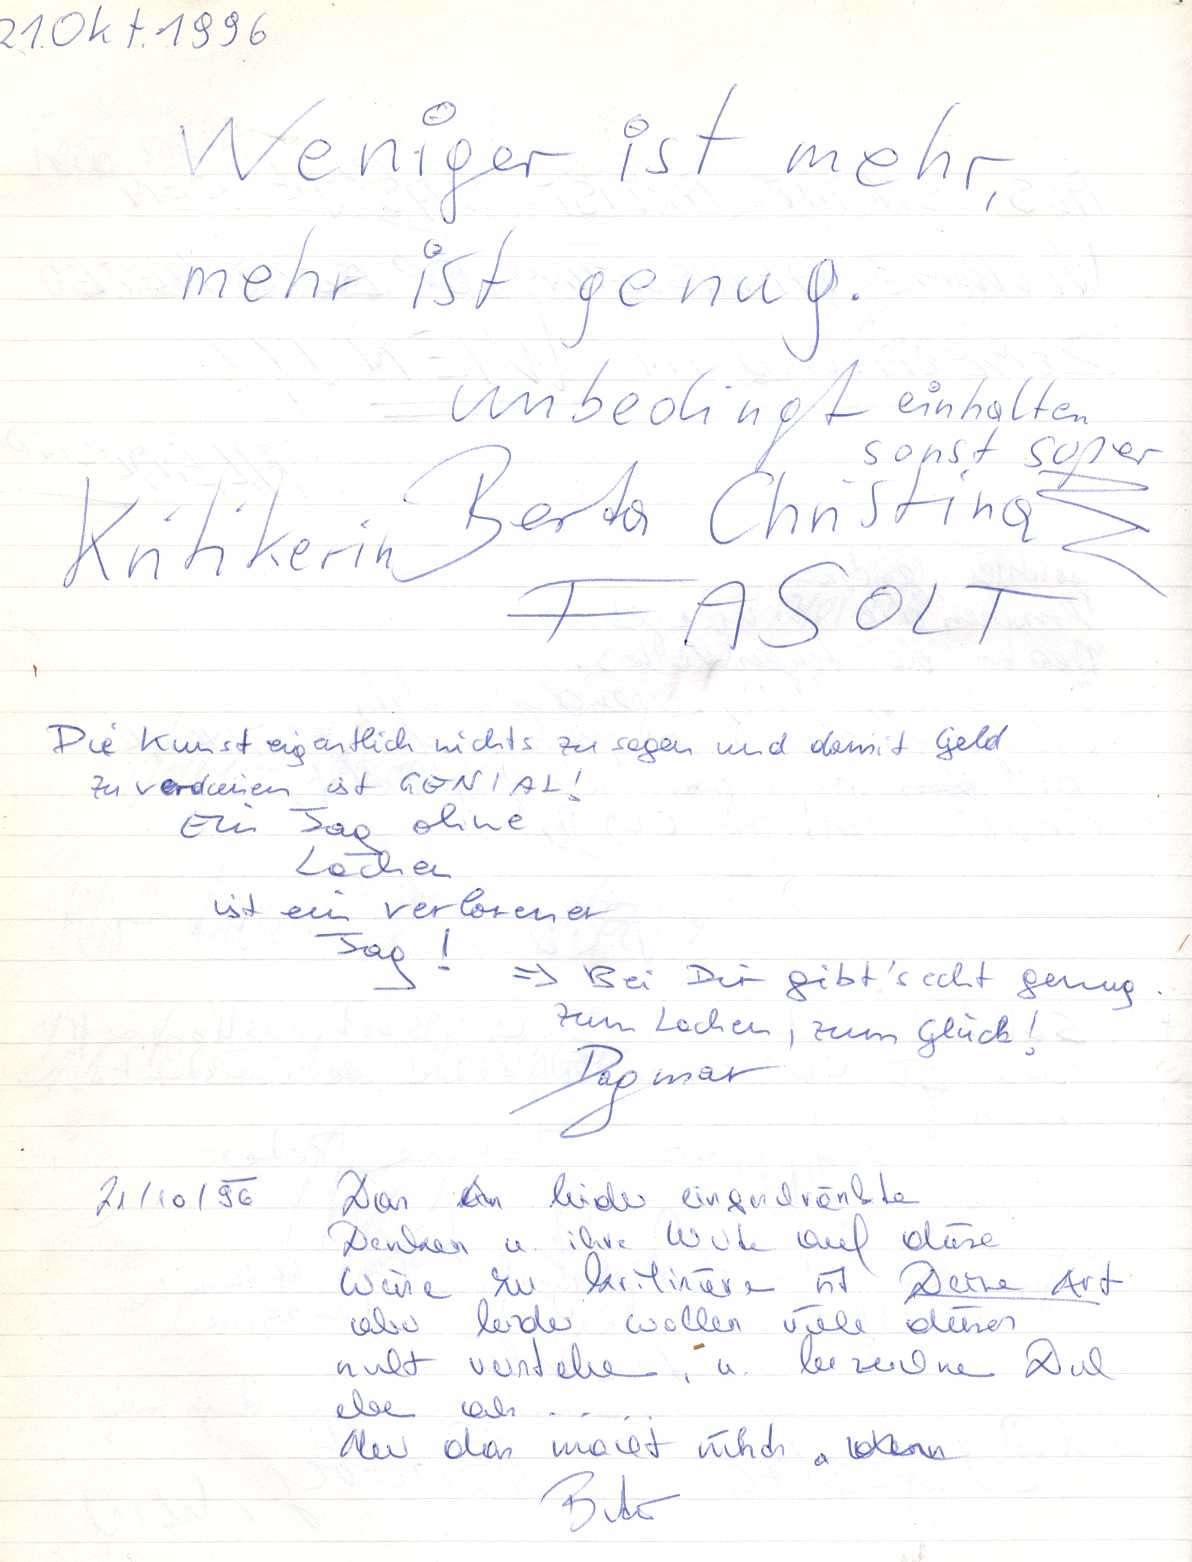 21. Okt. 1996
Weniger ist mehr,
mehr ist genug.
unbedingt einhalten
sonst super
Kritikerin Berta Christina
FASOLT
Die Kunst eigentlich nichts zu sagen und damit Geld
zu verdienen ist GENIAL!
Ein Tag ohne
Lachen
ist ein verlorener
Tag!
=> Bei Dir gibt's echt genug.
zum Lachen, zum Glück!
Dagmar
21/10/96 Das leider eingeschränkte
Denken u. ihre Wut auf diese
Weise zu kritisieren ist Deine Art
aber leider wollen viele dieses
nicht verstehen, u. bezeichnen Dich
eben als .....
Aber das macht nichts,